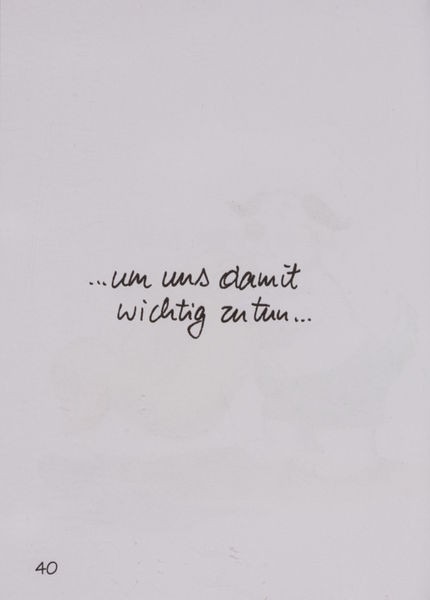 ...um uns damit
wichtig zu tun...
40